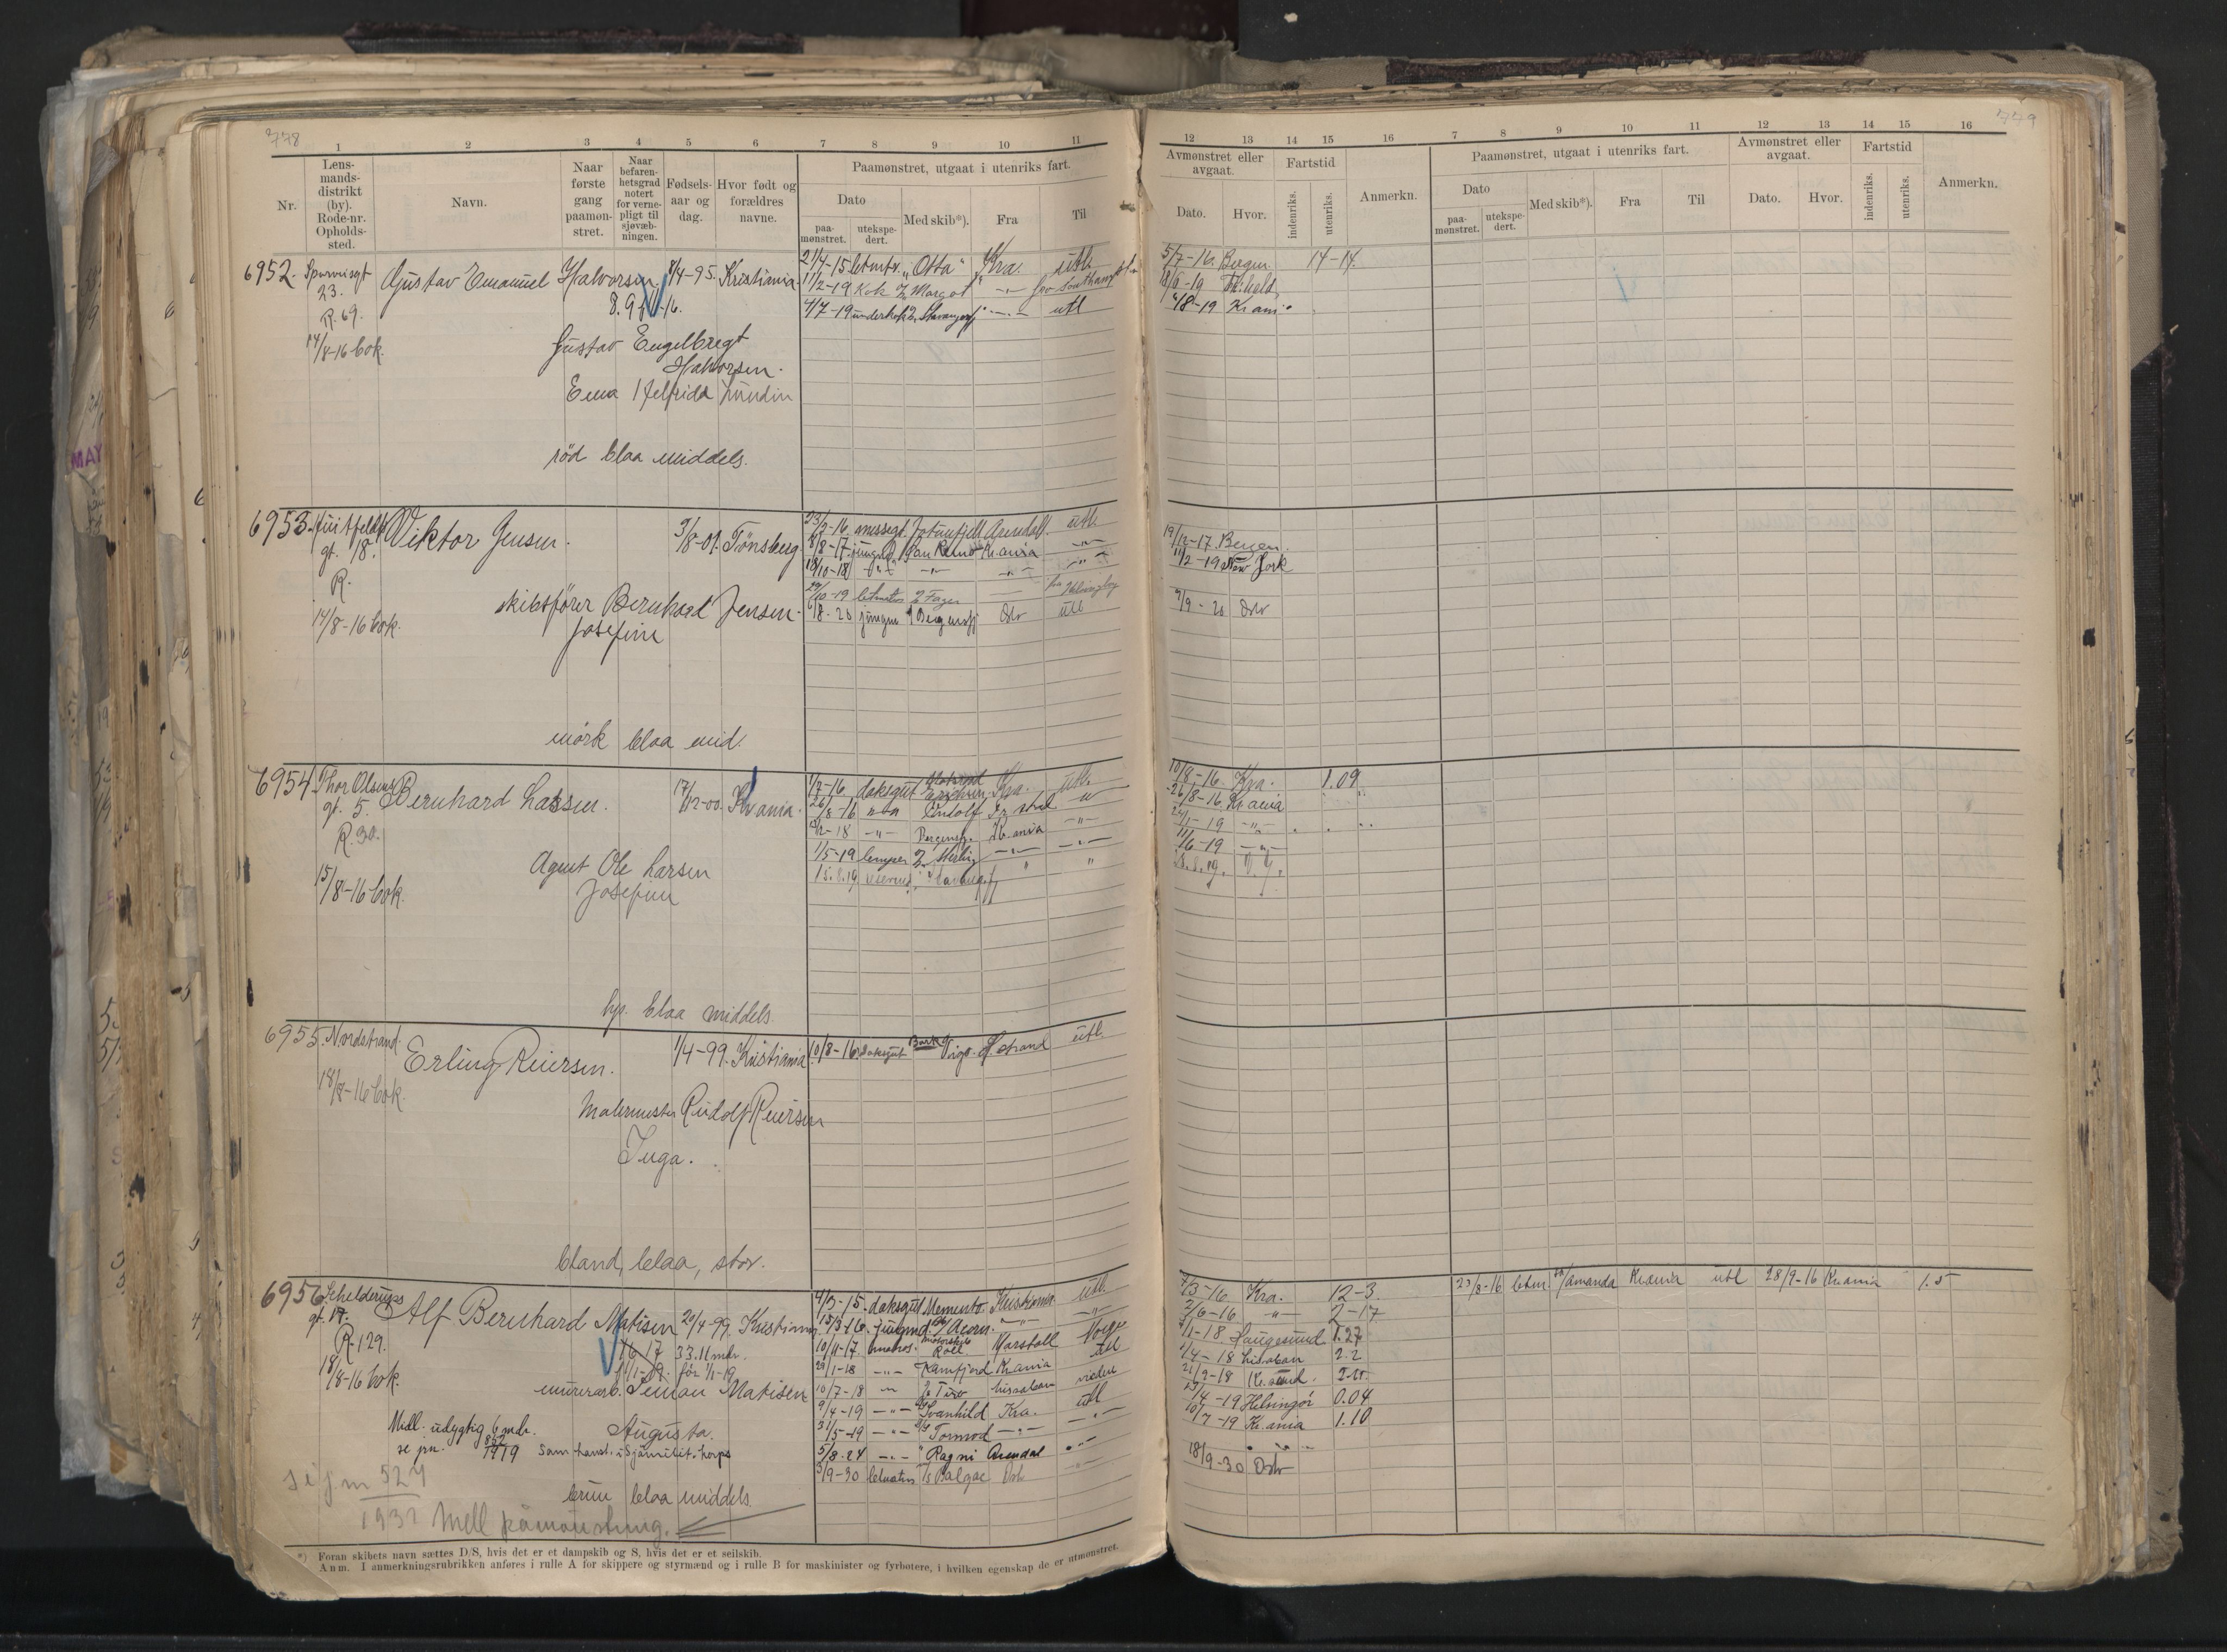 778
1 2 3 4 5 6 7 8 9 10 11
Nr.
Lens-
mands-
distrikt
(by).
Rode-nr.
Opholds-
sted.
Navn.
Naar
første
gang
paamøn-
stret.
Naar
befaren-
hetsgrad
notert
for verne-
pligt til
sjøvæb-
ningen.
Fødsels-
aar og
dag.
Hvor født og
forældres
navne.
Paamønstret, utgaat i utenriks fart.
Dato
paa-
mønstret.
utekspe-
dert.
Med skib*).
Fra
Til
6952. Gustav Emanuel Halvorsen. 8/4-95. Kristiania.
23.
R. 69.
14/8-16 bok.
Gustav Engelbregt
Halvorsen.
Helfrida Lundin
rød blaa middels.
21/4-15 letmtr. "Otta" Kra. utl.
11/2-19 Kok Margot fra Southampt
4/7-19 Stavangerfj utl
6953. Huitfeldt Viktor Jensen. 3/8-01. Tönsberg
gt. 18.
R.
14/8-16 bok.
skibsfører Bernhard Jensen.
Josefine
mörk blaa mid.
23/2-16. Jotunfjell Arendal. utl.
8/8-17 jungm. San Remo Kr.ania -"-
18/10-18
letmatr Fager fra Helsingborg
6/8-20 jungm Bergensfj Oslo utl
6954 Thor Olsens Bernhard Larsen. 17/12-00. Kr.ania.
gt. 5.
R. 30.
15/8-16 bok.
Agent Ole Larsen
Josefine
lys. blaa middels
1/7-16 daksgut Kra. utl.
26/8-16 Rudolf Fr.stad
-18 -"- Bergensfj. Kr.ania -"-
1/5-19 Sterling -"- -"-
15.8.19 Stavangerfj " "
6955. Nordstrand. Erling Reiersen. 1/4-99. Kristiania 10/8-16. daksgut Bark Vigo. utl.
18/8-16 bok.
Malermester Rudolf Reiersen
Inga.
blond, blaa, stor.
6956 Schelderups Alf Bernhard Matisen 20/4-99. Kristiania
gt. 17.
R. 129.
18/8-16 bok.
33.11 mdr.
før 1/1-19
murerarb. Matisen
Augusta.
Midl. udygtig 6 mdr.
se pn. 852/1919
527
1932 Mell påmønstring.
brun blaa middels
4/3-15. daksgut Memento. Kristiania utl.
15/3-16. jungmd. Acorn. -"-
10/11-17 matros. Marstall Norge
29/1-18 -"- Ramfjord Kr.ania utl
10/7-18 Tiro Lissabon
9/4-19 -"- Svanhild Kra. utl
31/5-19 -"- Tormod -"- -"-
5/8-24 -"- Ragni Arendal -"-
3/9-30 letmatros Balgac Oslo
*) Foran skibets navn sættes D/S, hvis det er et dampskib og S, hvis det er et seilskib.
Anm. I anmerkningsrubrikken anføres i rulle A for skippere og styrmænd og i rulle B for maskinister og fyrbøtere, i hvilken egenskap de er utmønstret.
779
12 13 14 15 16 7 8 9 10 11 12 13 14 15 16
Avmønstret eller
avgaat.
Dato.
Hvor.
Fartstid
indenriks.
utenriks.
Anmerkn.
Paamønstret, utgaat i utenriks fart.
Dato
paa-
mønstret.
utekspe-
dert.
Med skib*).
Fra
Til
Avmønstret eller
avgaat.
Dato.
Hvor.
Fartstid
indenriks.
utenriks.
Anmerkn.
5/7-16. Bergen. 14-14.
18/6-19 Tr.held
4/8-19 Kr.ania
19/12-17. Bergen.
11/2-19 New York
9/9-20 Oslo
10/8-16. Kra. 1.09
26/8-16. Kr.ania
-19 -"-
11/6-19 -"-
7/3-16. Kra. 12-3.
2/6-16. -"- 2-17
1/1-18. Haugesund 1.27
1/4-18 Lissabon 2.2
21/2-18 Kr.sund.
27/4-19 Helsingør 0.04
10/7-19 Kr.ania 1.10
18/9-30 Oslo
23/8-16 letm. Amanda Kr.ania utl 28/9-16 Kr.ania 1.5